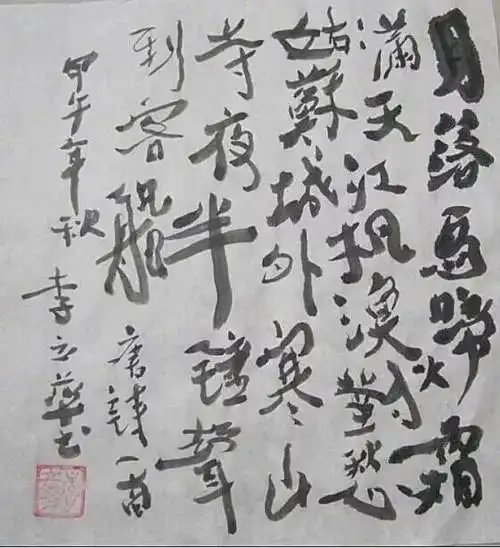 月落烏啼霜
滿天江枫漁火對愁
姑蘇城外寒山
寺夜半鐘聲
到客船 唐詩一首
甲午年秋 李